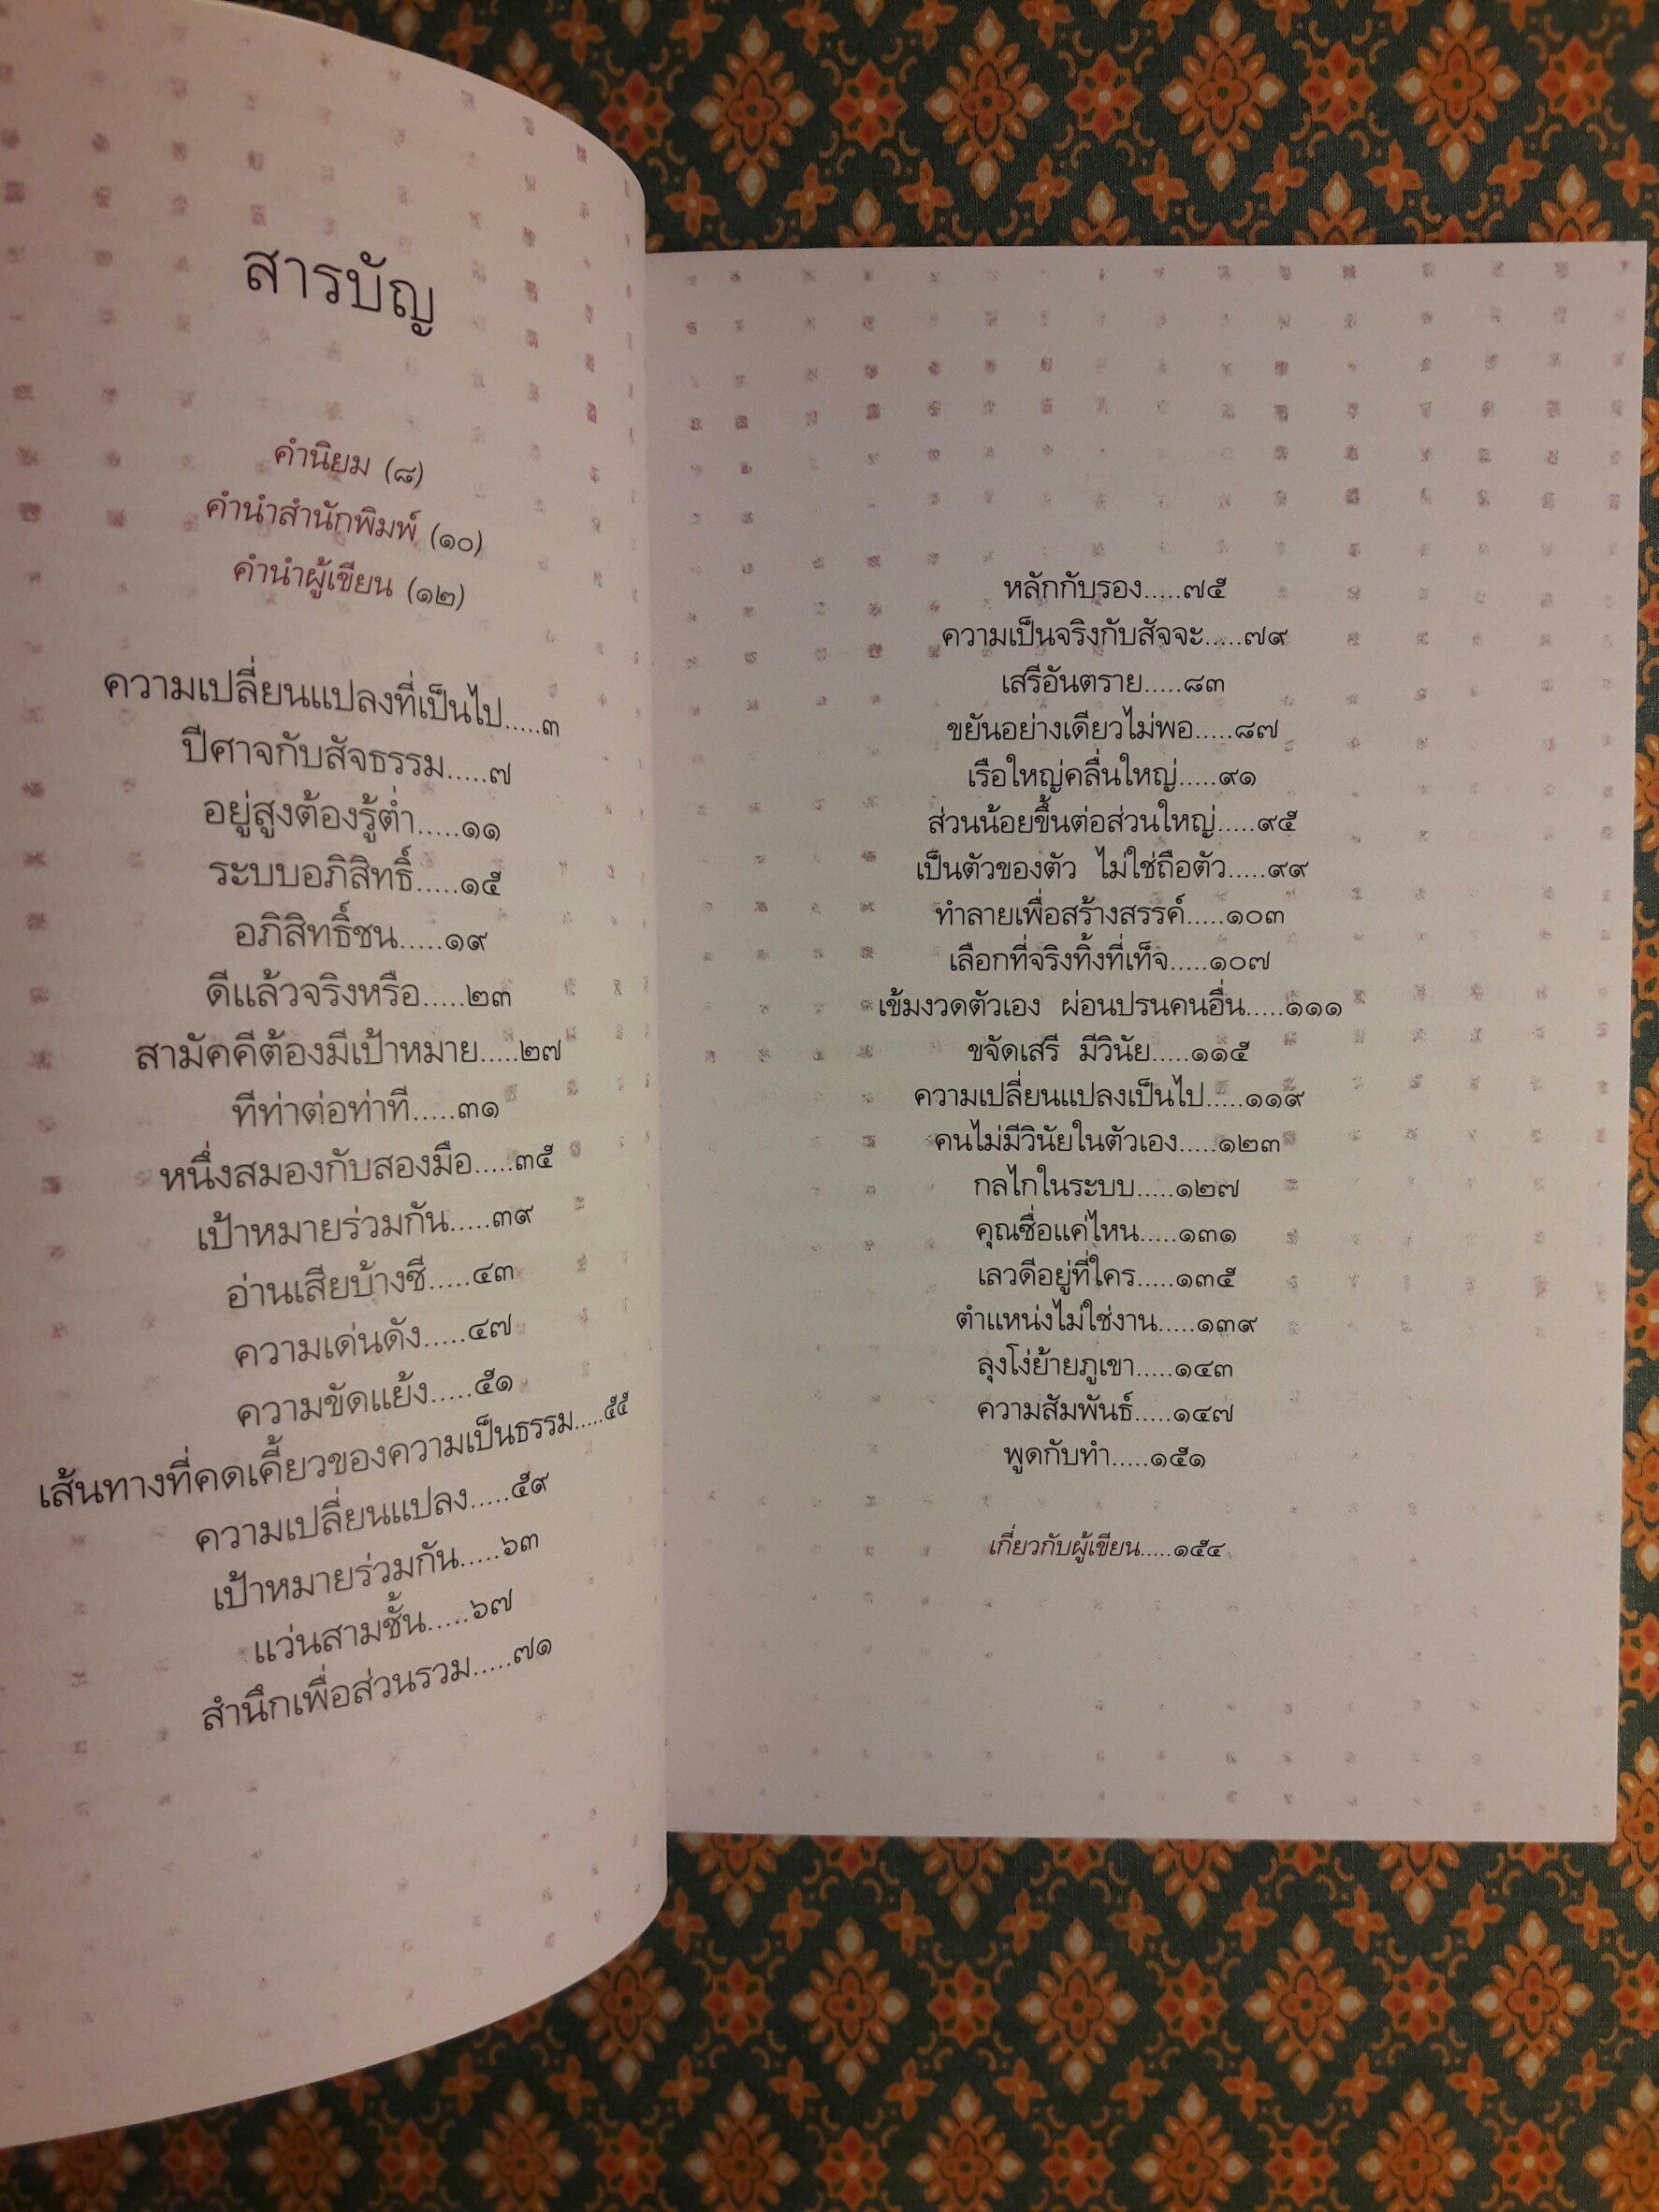 สารบัญ
คำนิยม (๘)
คำนำสำนักพิมพ์ (๑๐)
คำนำผู้เขียน (๑๒)
ความเปลี่ยนแปลงที่เป็นไป.....๓
ปีศาจกับสัจธรรม.....๗
อยู่สูงต้องรู้ต่ำ.....๑๑
ระบบอภิสิทธิ์.....๑๕
อภิสิทธิ์ชน.....๑๙
ดีแล้วจริงหรือ.....๒๓
สามัคคีต้องมีเป้าหมาย.....๒๗
ทีท่าต่อท่าที.....๓๑
หนึ่งสมองกับสองมือ.....๓๕
เป้าหมายร่วมกัน.....๓๙
อ่านเสียบ้างซี.....๔๓
ความเด่นดัง.....๔๗
ความขัดแย้ง.....๕๑
เส้นทางที่คดเคี้ยวของความเป็นธรรม.....๕๕
ความเปลี่ยนแปลง.....๕๙
เป้าหมายร่วมกัน.....๖๓
แว่นสามชั้น.....๖๗
สำนึกเพื่อส่วนรวม.....๗๑
หลักกับรอง.....๗๕
ความเป็นจริงกับสัจจะ.....๗๙
เสรีอันตราย.....๘๓
ขยันอย่างเดียวไม่พอ.....๘๗
เรือใหญ่คลื่นใหญ่.....๙๑
ส่วนน้อยขึ้นต่อส่วนใหญ่.....๙๕
เป็นตัวของตัว ไม่ใช่ถือตัว.....๙๙
ทำลายเพื่อสร้างสรรค์.....๑๐๓
เลือกที่จริงทิ้งที่เท็จ.....๑๐๗
เข้มงวดตัวเอง ผ่อนปรนคนอื่น.....๑๑๑
ขจัดเสรี มีวินัย.....๑๑๕
ความเปลี่ยนแปลงเป็นไป.....๑๑๙
คนไม่มีวินัยในตัวเอง.....๑๒๓
กลไกในระบบ.....๑๒๗
คุณซื่อแค่ไหน.....๑๓๑
เลวดีอยู่ที่ใคร.....๑๓๕
ตำแหน่งไม่ใช่งาน.....๑๓๙
ลุงโง่ย้ายภูเขา.....๑๔๓
ความสัมพันธ์.....๑๔๗
พูดกับทำ.....๑๕๑
เกี่ยวกับผู้เขียน.....๑๕๔